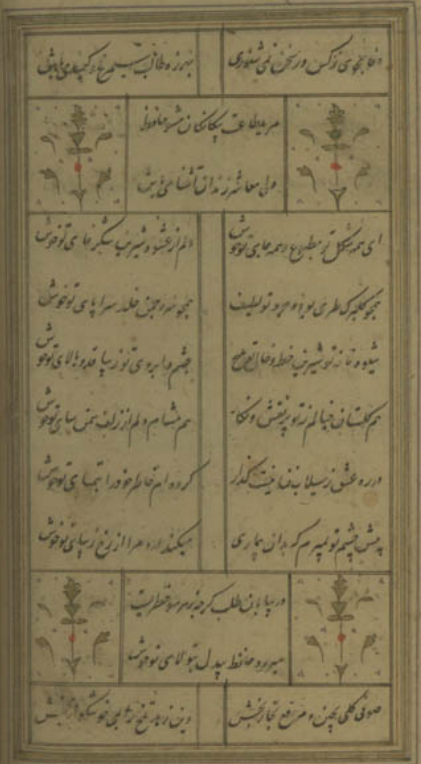 وفا مجوی ز کس ور سخن نمی‌شنوی
بهرزه طالب سیمرغ و کیمیا می‌باش
مرید طاعت بیگانگان مشو حافظ
ولی معاشر رندان آشنا می‌باش
ای همه شکل تو مطبوع و همه جای تو خوش
دلم از عشوه شیرین شکرخای تو خوش
همچو گلبرگ طری بود وجود تو لطیف
همچو سرو چمن خلد سراپای تو خوش
شیوه و ناز تو شیرین خط و خال تو ملیح
چشم و ابروی تو زیبا قد و بالای تو خوش
هم گلستان خیالم ز تو پر نقش و نگار
هم مشام دلم از زلف سمن سای تو خوش
در ره عشق ز سیلاب فنا نیست گذار
کرده‌ام خاطر خود را بتمنای تو خوش
پیش چشم تو بمیرم که بدان بیماری
میکند درد مرا از رخ زیبای تو خوش
در بیابان طلب گرچه ز هر سو خطریست
میرود حافظ بیدل بتولای تو خوش
صوفی گلی بچین و مرقع بخار بخش
وین زهد تلخ را بمی خوشگوار بخش